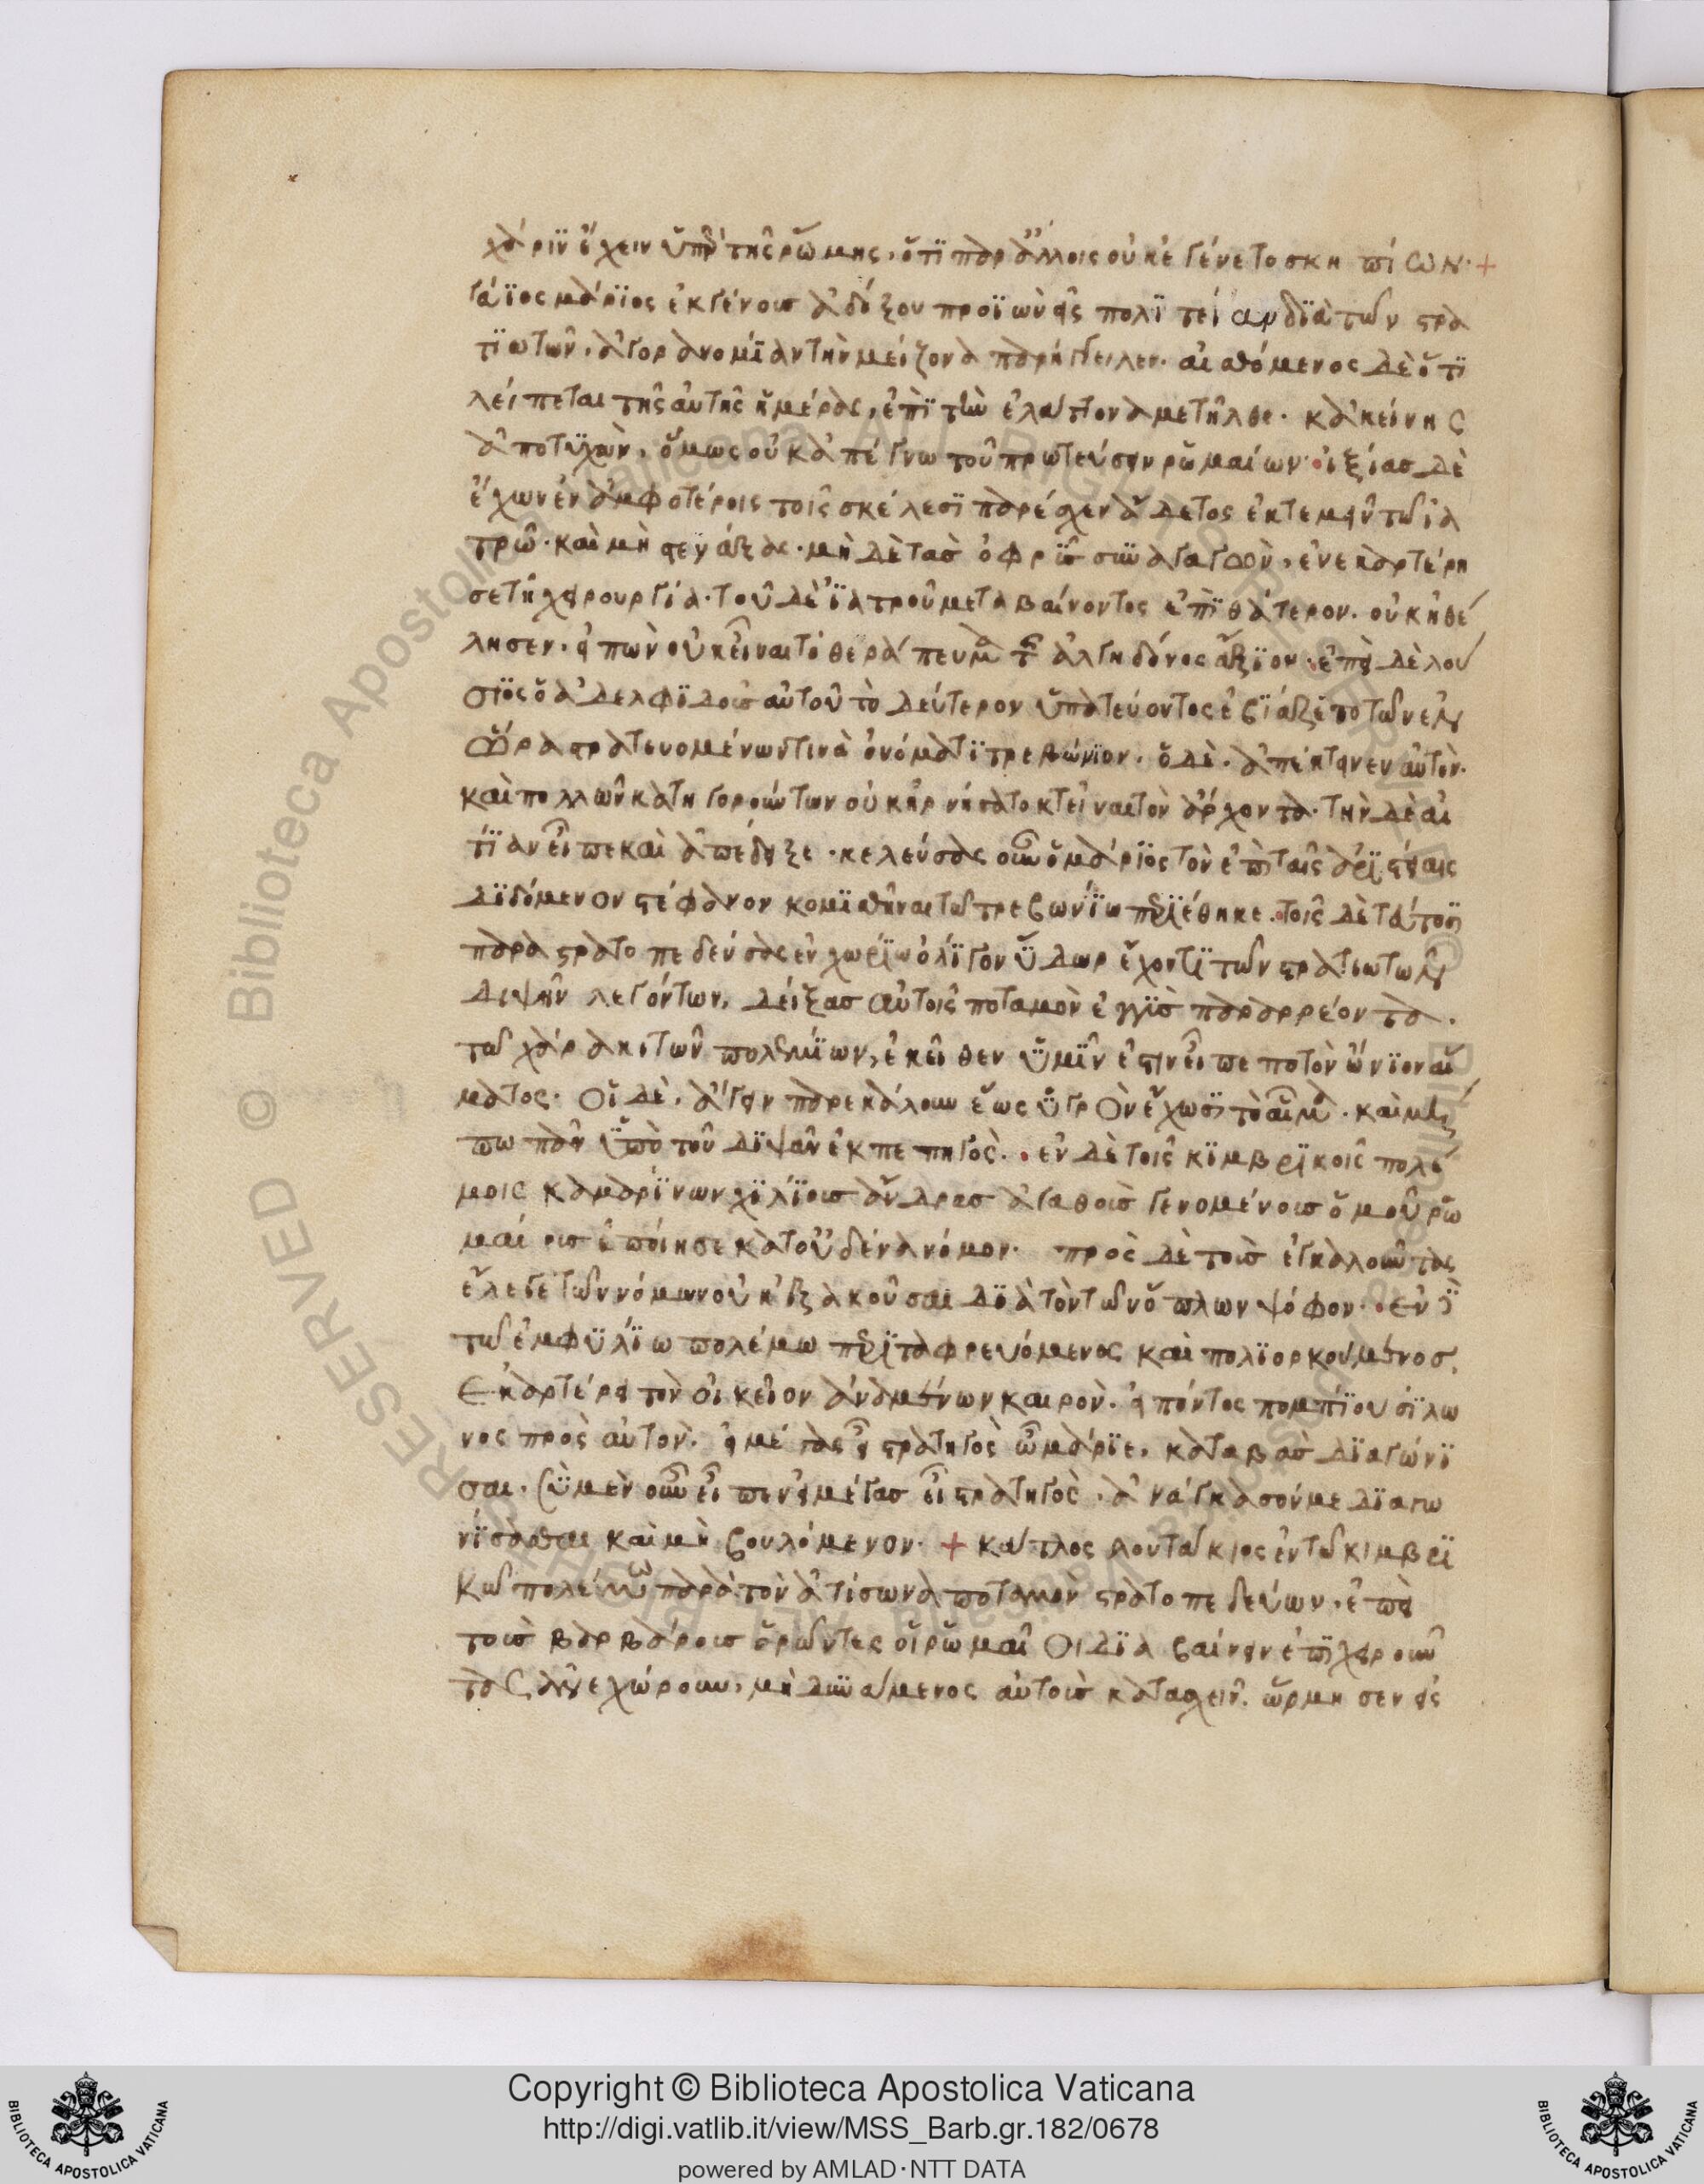 χάριν ἔχειν ὑπὲρ τῆς ῥώμης, ὅτι παρ' ἄλλοις οὐκ ἐγένετο σκηπίων· +
γάϊος μάριος ἐκ γένους ἀδόξου προϊὼν εἰς πολιτείαν διὰ τῶν στρα
τιωτῶν, ἀγορανομίαν τὴν μείζονα παρήγγειλεν. αἰσθόμενος δὲ ὅτι
λείπεται τῆς αὐτῆς ἡμέρας, ἐπὶ τὴν ἐλάττονα μετῆλθε. κἀκείνης
ἀποτυχὼν, ὅμως οὐκ ἀπέγνω τοῦ πρωτεύσειν ῥωμαίων· ἰξίας δὲ
ἔχων ἐν ἀμφοτέροις τοῖς σκέλεσι παρέσχεν ἄδετος ἐκτεμεῖν τῶ ἰα
τρῶ. καὶ μὴ στενάξας. μὴ δὲ τὰς ὀφρῦς συναγαγὼν, ἐνεκαρτέρη
σε τῆ χειρουργία. τοῦ δὲ ἰατροῦ μεταβαίνοντος ἐπὶ θάτερον. οὐκ ἠθέ
λησεν. εἰπὼν οὐκ εἶναι τὸ θεράπευμα τῆς ἀλγηδόνος ἄξιον. ἐπεὶ δὲ λού
σιος ὁ ἀδελφιδοῦς αὐτοῦ τὸ δεύτερον ὑπατεύοντος ἐβιάζετο τῶν ἐν
ὥρα στρατευομένων τινὰ ὀνόματι τρεβώνιον. ὁ δὲ. ἀπέκτεινεν αὐτὸν.
καὶ πολλῶν κατηγορούντων οὐκ ἠρνήσατο κτεῖναι τὸν ἄρχοντα. τὴν δὲ αἰ
τίαν εἶπε καὶ ἀπέδειξε. κελεύσας οὖν ὁ μάριος τὸν ἐπὶ ταῖς ἀριστείαις
διδόμενον στέφανον κομισθῆναι τῶ τρεβωνίω περιέθηκε. τοῖς δὲ τεύτοσι
παραστρατοπεδεύσας ἐν χωρίω ὀλίγον ὕδωρ ἔχοντι τῶν στρατιωτῶν
διψῆν λεγόντων, δείξας αὐτοῖς ποταμὸν ἐγγὺς παραρρέοντα.
τῶ χάρακι τῶν πολεμίων, ἐκεῖθεν ὑμῖν ἐστιν εἶπε ποτὸν ὤνιον αἵ
ματος. οἱ δὲ. ἄγειν παρεκάλουν ἕως ὑγρὸν ἔχωσι τὸ αἷμα. καὶ μή
πω πᾶν ὑπὸ τοῦ διψᾶν ἐκπεπηγός. ἐν δὲ τοῖς κιμβρικοῖς πολέ
μοις καμαρίνων χιλίους ἄνδρας ἀγαθοὺς γενομένους ὁμοῦ ῥω
μαίους ἐποίησε κατ' οὐδένα νόμον. πρὸς δὲ τοὺς ἐγκαλοῦντας
ἔλεγε τῶν νόμων οὐκ ἐξακοῦσαι διὰ τὸν τῶν ὅπλων ψόφον. ἐν δὲ
τῶ ἐμφυλίω πολέμω περιταφρευόμενος καὶ πολιορκούμενος.
ἐκαρτέρει τὸν οἰκεῖον ἀναμένων καιρὸν. εἰπόντος πομπηίου σίλω
νος πρὸς αὐτὸν. εἰ μέγας εἶ στρατηγὸς ὦ μάριε. καταβὰς διαγώνι
σαι. σὺ μὲν οὖν εἶπεν εἰ μέγας εἶ στρατηγὸς. ἀνάγκασόν με διαγω
νίσασθαι καὶ μὴ βουλόμενον. + κάτλος λουτάκιος ἐν τῶ κιμβρι
κῶ πολέμω παρὰ τὸν ἀτίσωνα ποταμὸν στρατοπεδεύων. ἐπεὶ
τοὺς βαρβάρους ὁρῶντες οἱ ῥωμαῖοι διαβαίνειν ἐπιχειροῦν
τας ἀνεχώρουν, μὴ δυνάμενος αὐτοὺς κατασχεῖν. ὥρμησεν εἰς